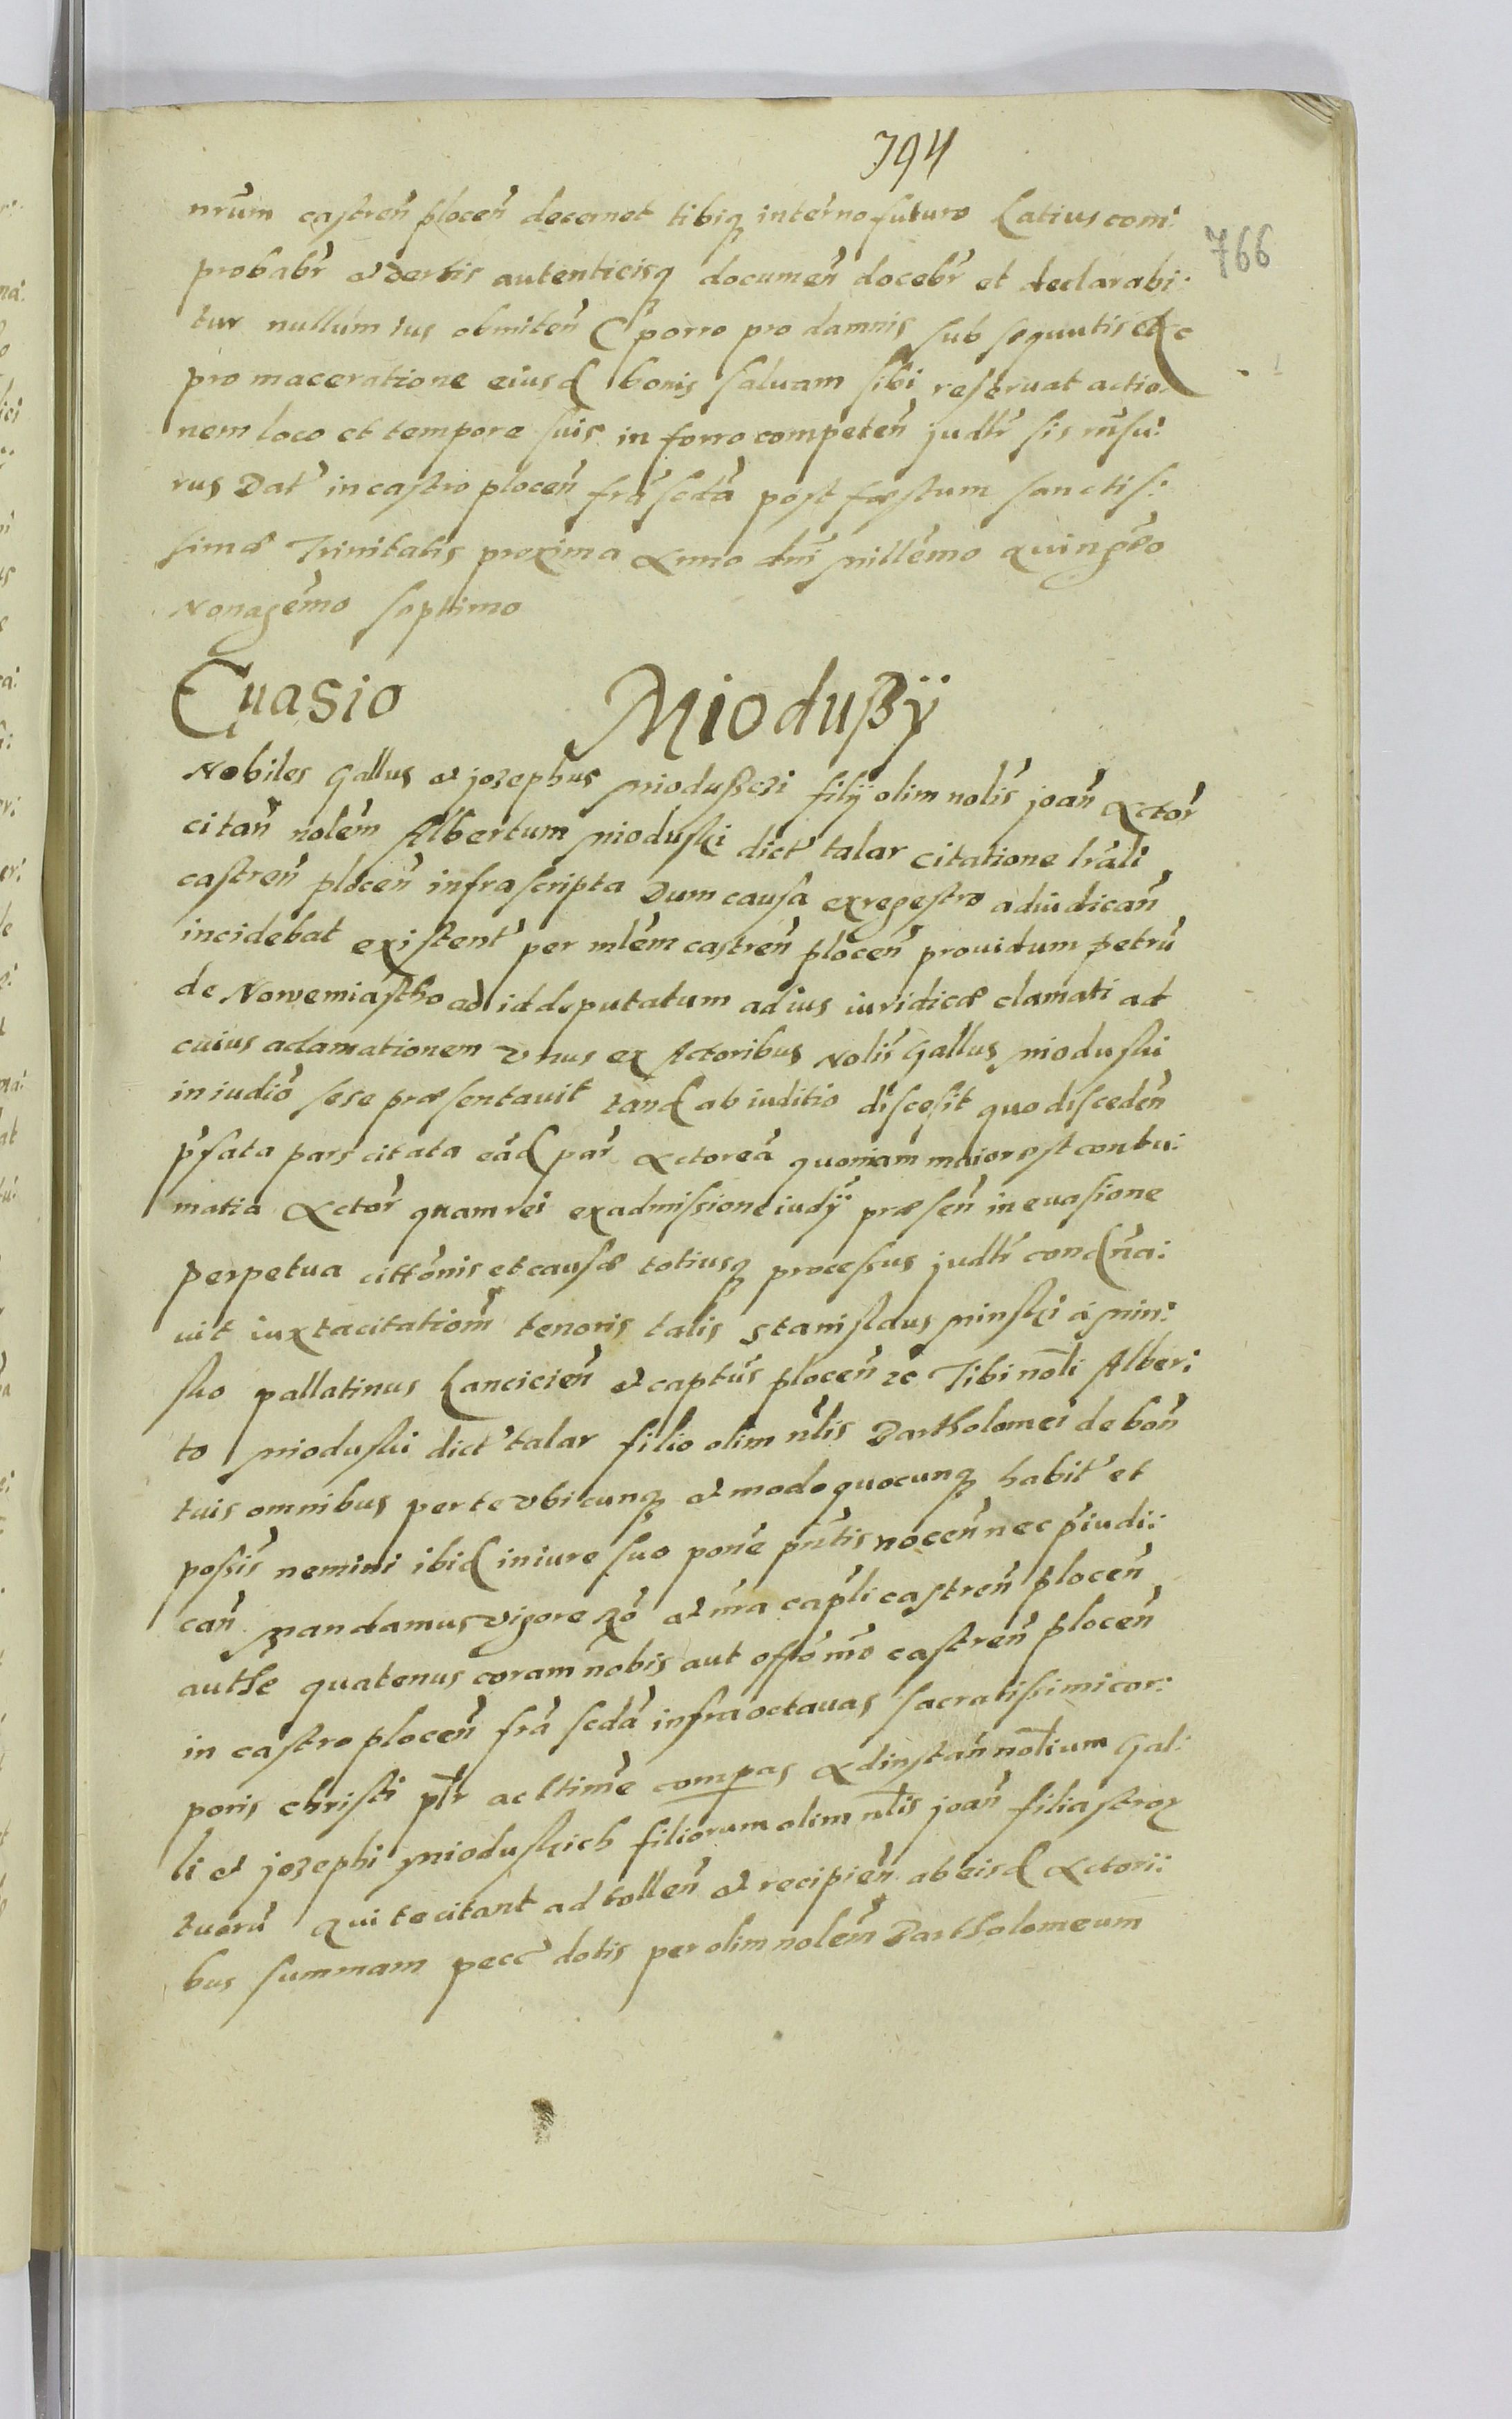 794
766
nrũm castreñ ploceñ decernet tibiq̃ in termo futuro Latius com:
probabr̃ et certis autenticisq̃ documeñ docebr̃ et declarabi:
tur nullum ius obmiteñ porro pro damnis sub sequutis
pro maceratione eiusd bonis saluam sibi reseruat actio
nem loco et tempore suis in forro competeñ judlr̃ sis rñsu:
rus Dat' in castro ploceñ frã scdã post fæstum sanctis:
simæ Trinitatis proxima Anno dñi millẽmo quingẽo
Nonagẽmo septimo
Euasio Mioduβÿ
Nobiles Gallus et jozephus Mioduβczi filÿ olim nolĩs joañ Actor̃
citañ nolẽm Albertum Mioduski dict' talar citatione lrãli
castreñ ploceñ infrascripta Dum causa ex regestro adiudicañ
incidebat existent' per mlẽm castreñ ploceñ prouidum petrũ
de Nowemiastho ad id deputatum ad ius iuridicæ clamati ad
cuius adamationem vnus ex Actoribus Nolĩs Gallus Mioduski
in iudiõ sese præsentauit tand ab iuditio discesit quo discedeñ
p̃fata pars citata eãd par̃ Actoreã quoniam maior est contu:
matia Actor̃ quam rei ex admissione iudÿ præseñ in euasione
perpetua cittõnis et causæ totiusq̃ processus judlr̃ condñã:
uit iuxta citatiom̃ tenoris talis Stanislaus Minski á Min:
sko pallatinus Lancicieñ et captũs ploceñ zc Tibi noli Alber:
to Mioduski dict' talar filio olim nlĩs Bartholomei de boñ
tuis omnibus per te vbicunq̃ et modo quocunq̃ habit' et
possis nemini ibid in iure suo pone p̃ntis noceñ nec p̃iudi:
cañ Mandamus vigore Rõ et nr̃a capli castreñ ploceñ
authe quatenus coram nobis aut offõ nr̃o castreñ ploceñ
in castro ploceñ frã scdã infra octauas sacratissimi cor:
poris christi plr̃ ac ltime compas Ad instañ nolium Gal:
li et jozephi Mioduskich filiorum olim nlĩs joañ filiastror
tuorũ qui te citant ad tolleñ et recipieñ ab eisd Actori:
bus summam pecc' dotis per olim nolẽm Bartholomeum